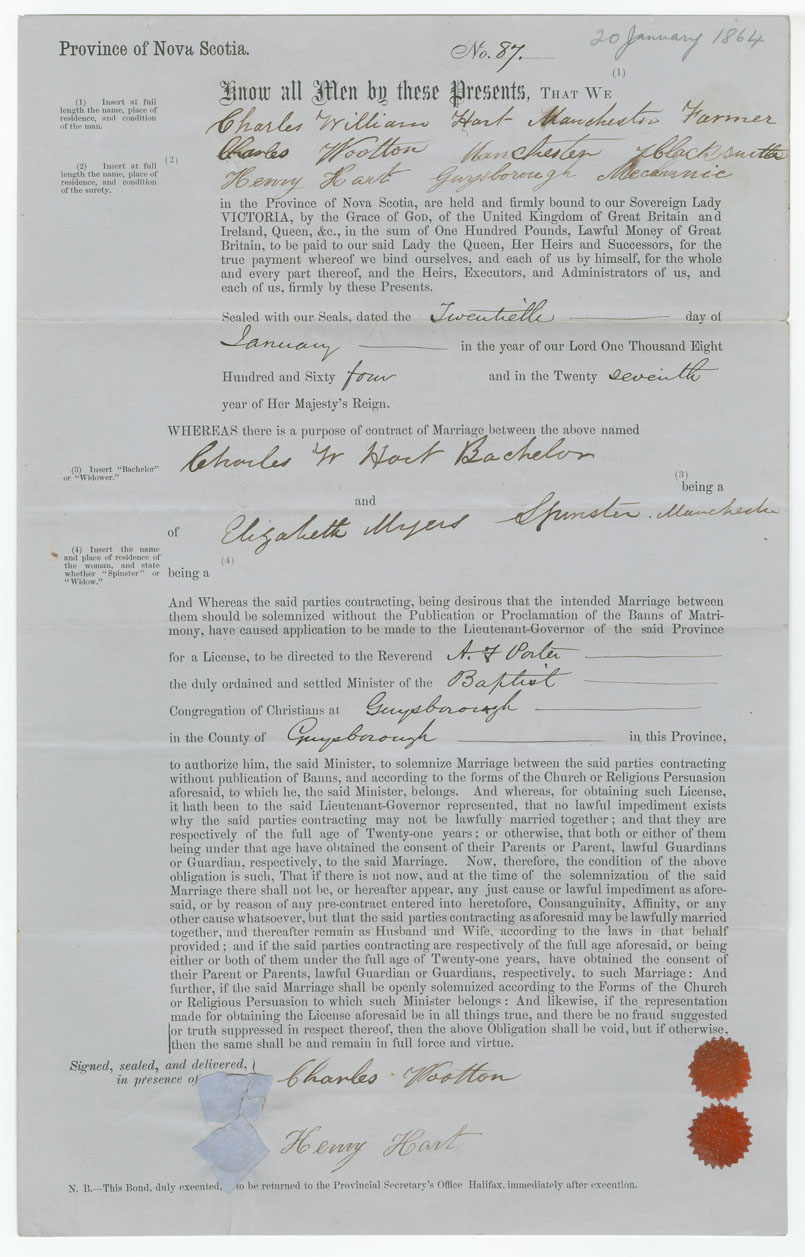 Province of Nova Scotia.
No. 87.
20 January 1864
(1)
Know all Men by these Presents, THAT WE
(1) Insert at full
length the name, place of
residence, and condition
of the man.
Charles William Hart Manchester Farmer
(2)
Charles Wootton Manchester Blacksmith
(2) Insert at full
length the name, place of
residence, and condition
of the surety.
Henry Hart Guysborough Mecannic
in the Province of Nova Scotia, are held and firmly bound to our Sovereign Lady
VICTORIA, by the Grace of GOD, of the United Kingdom of Great Britain and
Ireland, Queen, &c., in the sum of One Hundred Pounds, Lawful Money of Great
Britain, to be paid to our said Lady the Queen, Her Heirs and Successors, for the
true payment whereof we bind ourselves, and each of us by himself, for the whole
and every part thereof, and the Heirs, Executors, and Administrators of us, and
each of us, firmly by these Presents.
Sealed with our Seals, dated the Twentieth day of
January in the year of our Lord One Thousand Eight
Hundred and Sixty four and in the Twenty seventh
year of Her Majesty's Reign.
WHEREAS there is a purpose of contract of Marriage between the above named
Charles W Hart Bachelor
(3) Insert "Bachelor"
or "Widower."
(3)
being a
and
of Elizabeth Myers Spinster. Manchester
(4) Insert the name
and place of residence of
the woman, and state
whether "Spinster" or
"Widow."
(4)
being a
And Whereas the said parties contracting, being desirous that the intended Marriage between
them should be solemnized without the Publication or Proclamation of the Banns of Matri-
mony, have caused application to be made to the Lieutenant-Governor of the said Province
for a License, to be directed to the Reverend A. F Porter
the duly ordained and settled Minister of the Baptist
Congregation of Christians at Guysborough
in the County of Guysborough in this Province,
to authorize him, the said Minister, to solemnize Marriage between the said parties contracting
without publication of Banns, and according to the forms of the Church or Religious Persuasion
aforesaid, to which he, the said Minister, belongs. And whereas, for obtaining such License,
it hath been to the said Lieutenant-Governor represented, that no lawful impediment exists
why the said parties contracting may not be lawfully married together; and that they are
respectively of the full age of Twenty-one years; or otherwise, that both or either of them
being under that age have obtained the consent of their Parents or Parent, lawful Guardians
or Guardian, respectively, to the said Marriage. Now, therefore, the condition of the above
obligation is such, That if there is not now, and at the time of the solemnization of the said
Marriage there shall not be, or hereafter appear, any just cause or lawful impediment as afore-
said, or by reason of any pre-contract entered into heretofore, Consanguinity, Affinity, or any
other cause whatsoever, but that the said parties contracting as aforesaid may be lawfully married
together, and thereafter remain as Husband and Wife, according to the laws in that behalf
provided; and if the said parties contracting are respectively of the full age aforesaid, or being
either or both of them under the full age of Twenty-one years, have obtained the consent of
their Parent or Parents, lawful Guardian or Guardians, respectively, to such Marriage: And
further, if the said Marriage shall be openly solemnized according to the Forms of the Church
or Religious Persuasion to which such Minister belongs: And likewise, if the representation
made for obtaining the License aforesaid be in all things true, and there be no fraud suggested
or truth suppressed in respect thereof, then the above Obligation shall be void, but if otherwise,
then the same shall be and remain in full force and virtue.
Signed, sealed, and delivered,
in presence of
Charles Wootton
Henry Hart
N. B.—This Bond, duly executed, to be returned to the Provincial Secretary's Office Halifax, immediately after execution.